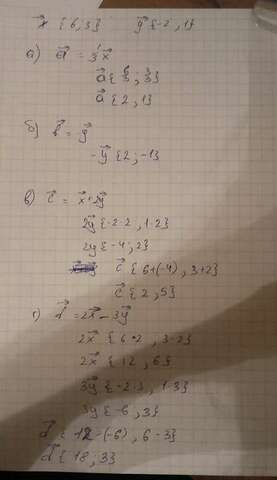 x⃗ {6, 3} y⃗ {-2, 1}
а) a⃗ = 1/3 x⃗
a⃗ {6/3, 3/3}
a⃗ {2, 1}
б) b⃗ = y⃗
-y⃗ {2; -1}
в) c⃗ = x⃗+2y⃗
2y⃗ {-2·2, 1·2}
2y {-4; 2}
c⃗ {6+(-4), 3+2}
c⃗ {2, 5}
г) d⃗ = 2x⃗ - 3y⃗
2x⃗ {6·2, 3·2}
2x⃗ {12, 6}
3y⃗ {-2·3, 1·3}
3y {-6, 3}
d⃗ {12-(-6), 6-3}
d⃗ {18, 3}